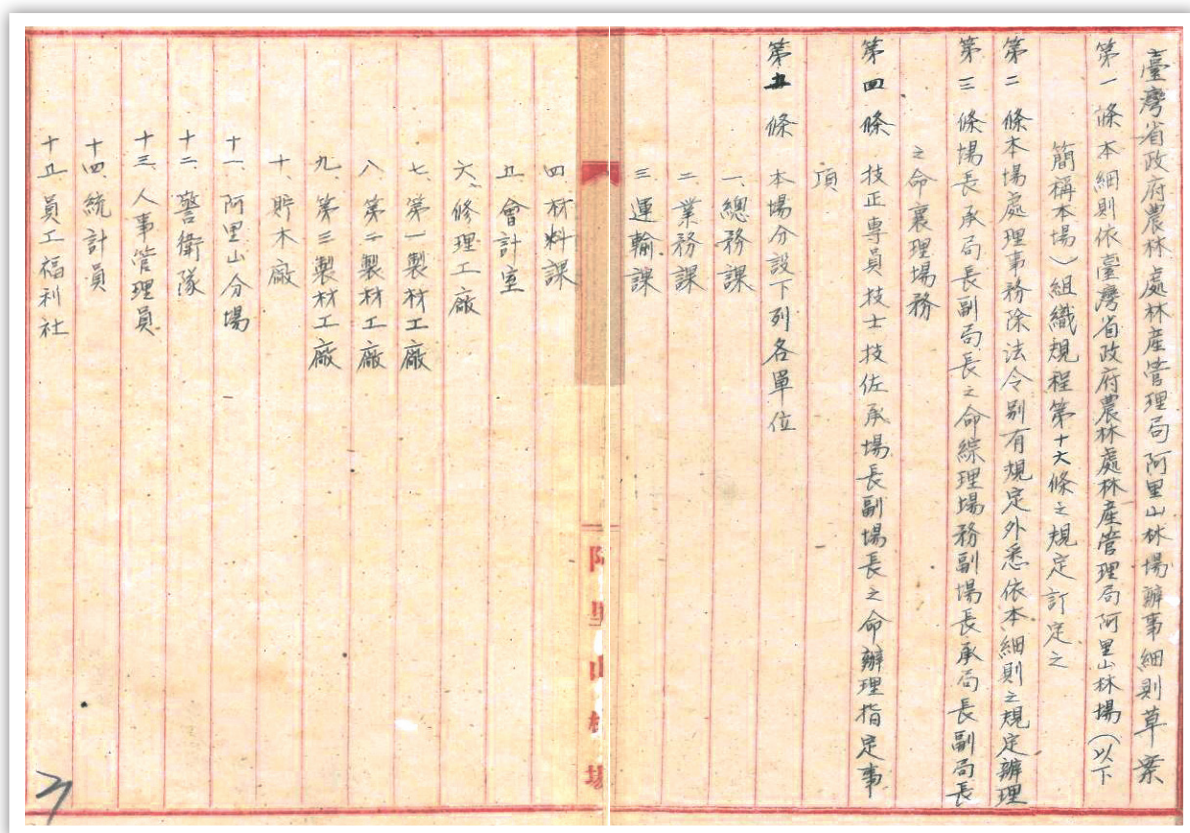 臺灣省政府農林處林產管理局阿里山林場辦事細則草案
第一條 本細則依臺灣省政府農林處林產管理局阿里山林場(以下
簡稱本場)組織規程第十六條之規定訂定之
第二條 本場處理事務除法令別有規定外悉依本細則之規定辦理
第三條 場長承局長副局長之命綜理場務副場長承局長副局長
之命襄理場務
第四條 技正專員技士技佐承場長副場長之命辦理指定事
項
第五條 本場分設下列各單位
一、總務課
二、業務課
三、運輸課
阿里山林場
四、材料課
五、會計室
六、修理工廠
七、第一製材工廠
八、第二製材工廠
九、第三製材工廠
十、貯木廠
十一、阿里山分場
十二、警衛隊
十三、人事管理員
十四、統計員
十五、員工福利社